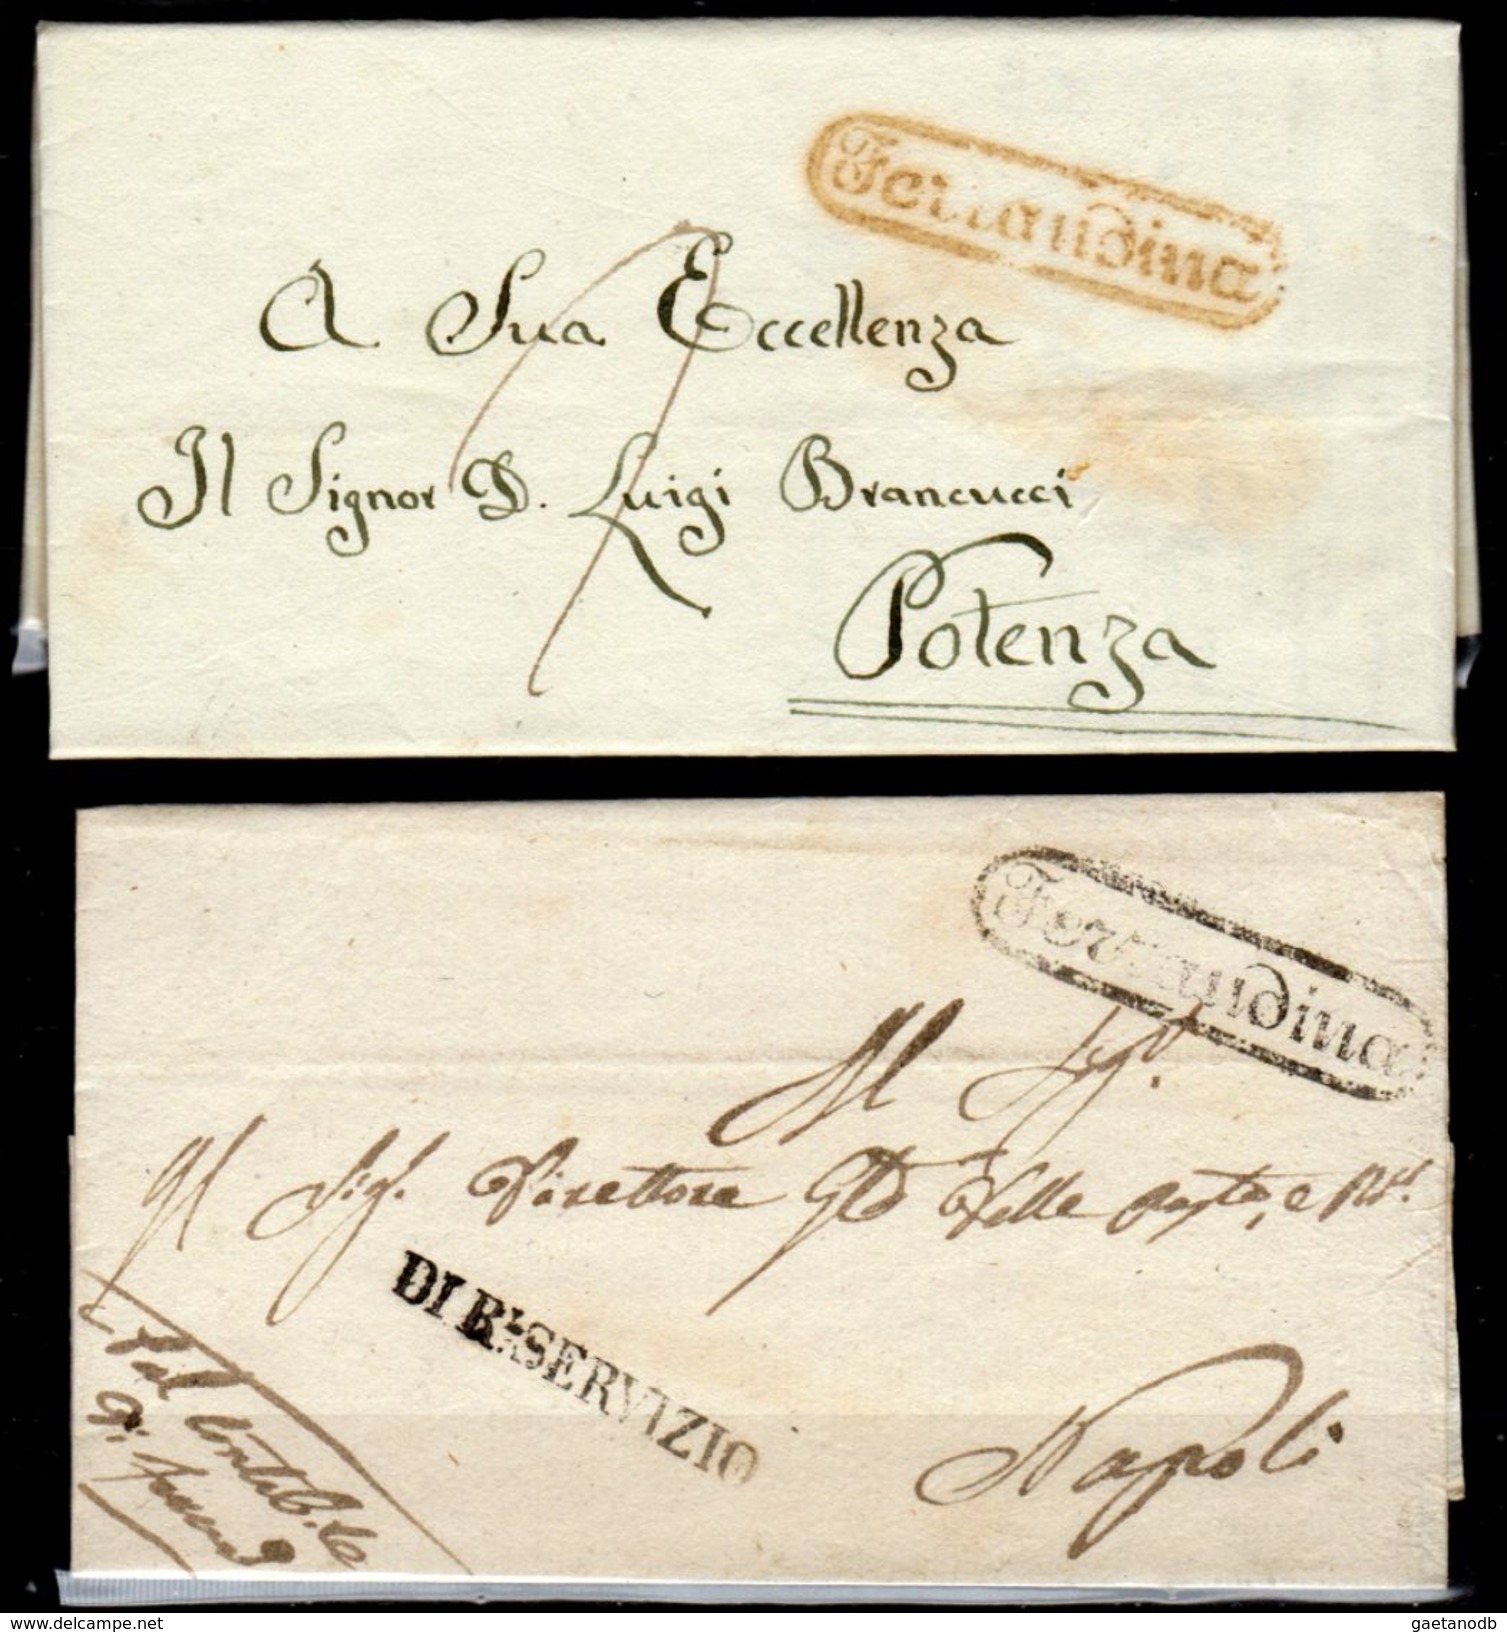 Ferrandina
A Sua Eccellenza
Il Signor D. Luigi Brancucci
Potenza
Ferrandina
Al Sigr.
Il Sigr. Direttore Gle delle Poste, e
DI RLE SERVIZIO
Napoli
Dal Contabile
di
gaetanodb